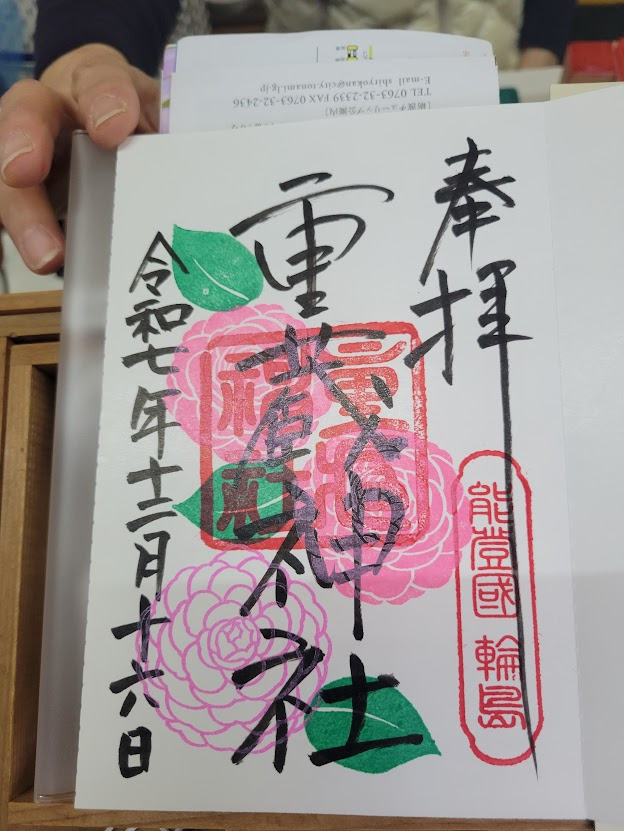 奉拝
能登國 輪島
重蔵神社
令和七年十二月十六日
[砺波チューリップ公園内]
TEL 0763-32-2339 FAX 0763-32-2436
E-mail shiryokan@city.tonami.lg.jp